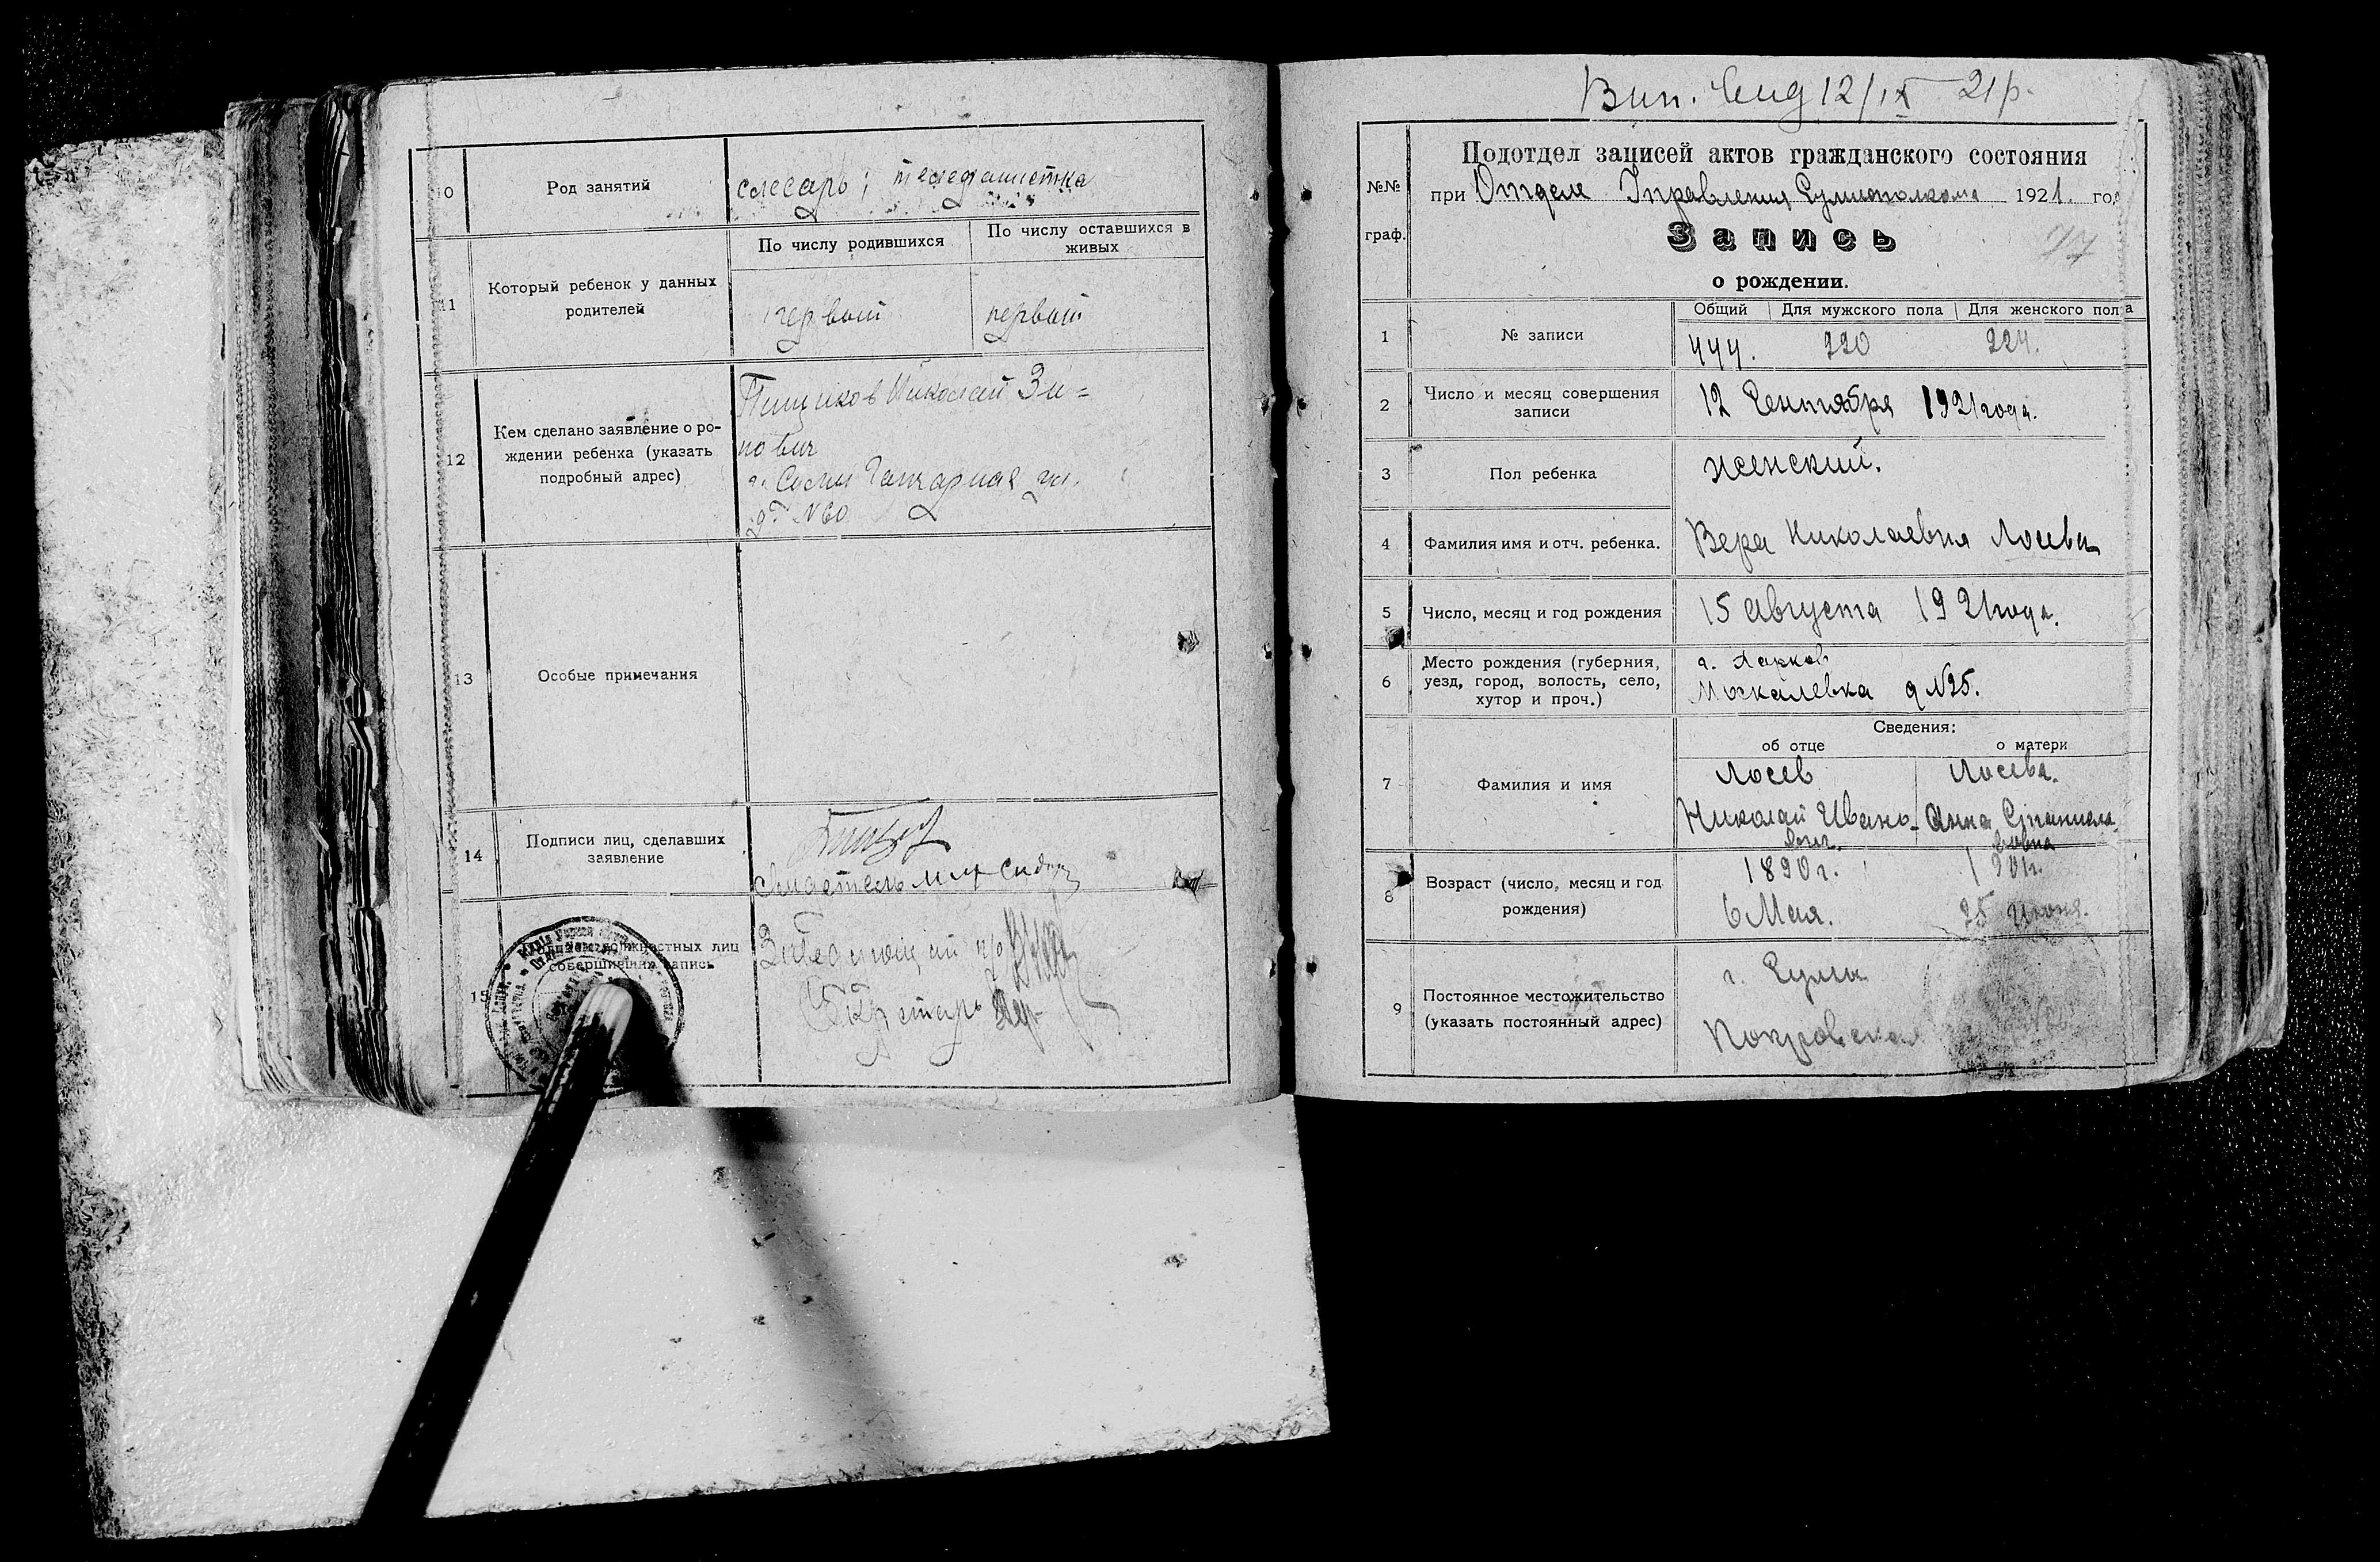 10
Род занятий
слесарь; телефонистка
11
Который ребенок у данных
родителей
По числу родившихся
По числу оставшихся в
живых
первый
первый
12
Кем сделано заявление о ро-
ждении ребенка (указать
подробный адрес)
Николай Зи=
нович
г. Сумы ул.
д. №60
13
Особые примечания
14
Подписи лиц, сделавших
заявление
15
должностных лиц
совершивших запись
Заведующий п/о
Секретарь
Вип. 12/IX 21р.
№№
граф.
Подотдел записей актов гражданского состояния
при Отделе Управления 1921. год
Запись
97
о рождении.
1
№ записи
Общий
Для мужского пола
Для женского пола
444.
220
224.
2
Число и месяц совершения
записи
12 Сентября 1921 года.
3
Пол ребенка
женский.
4
Фамилия имя и отч. ребенка.
Вера Николаевна Лосева
5
Число, месяц и год рождения
15 августа 1921 года.
6
Место рождения (губерния,
уезд, город, волость, село,
хутор и проч.)
г. Харков
Москалевка д №25.
Сведения:
об отце
о матери
7
Фамилия и имя
Лосев
Николай Ивано-
вич.
Лосева.
Анна Станисла
вовна
8
Возраст (число, месяц и год
рождения)
1890 г.
6 Мая.
1901г.
25 Июня.
9
Постоянное местожительство
(указать постоянный адрес)
г. Сумы
Покровская